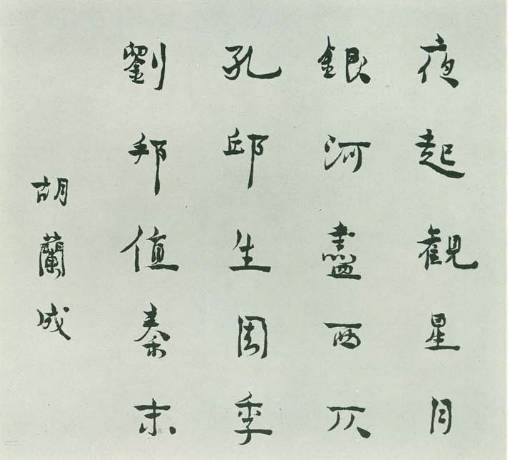 夜起觀星月
銀河盡西仄
孔邱生周季
劉邦值秦末
胡蘭成